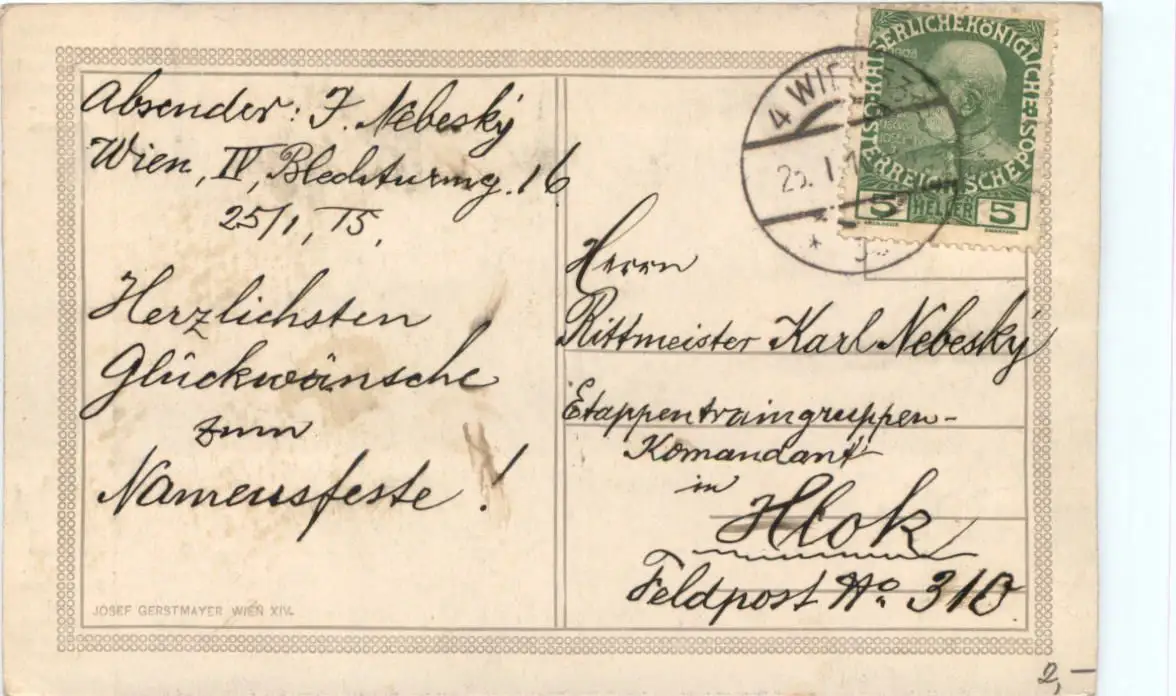 Absender: J. Nebeský
Wien, IV, Blechturmg. 16
25/1, 15.
Herzlichsten
Glückwünsche
zum
Namensfeste!
JOSEF GERSTMAYER WIEN XIV.
KAISERLICHEKÖNIGLICHE
ÖSTERREICHISCHE POST
1908
5 HELLER 5
4 WIEN 53
25. I. 1
Herrn
Rittmeister Karl Nebeský
Etappentraingruppen-
Komandant
in
Illok
Feldpost No. 310
2,-